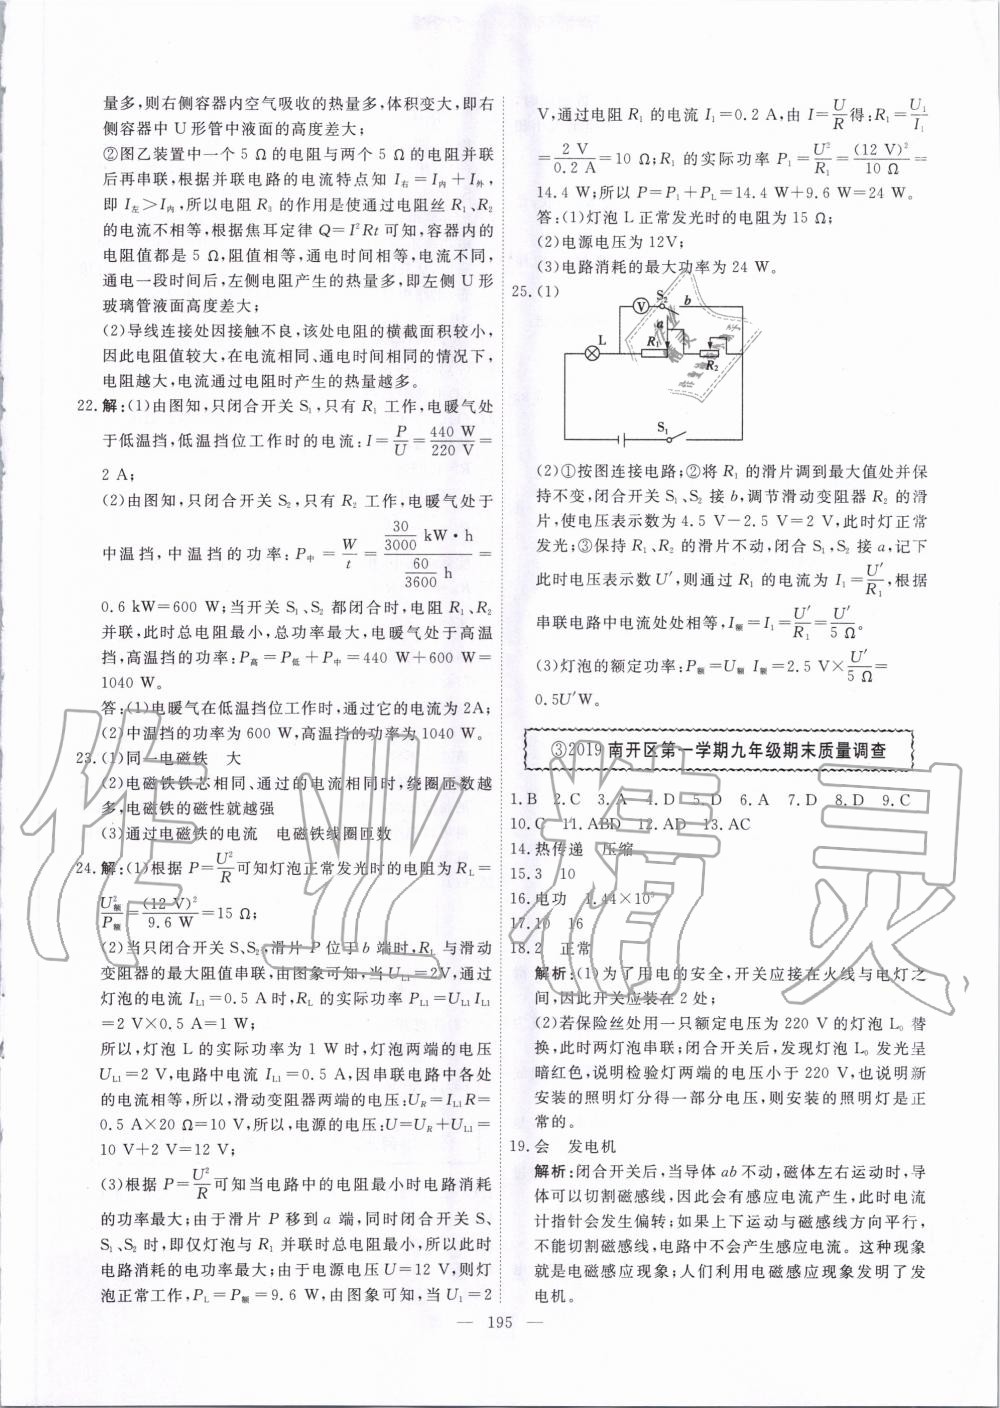 量多,则右侧容器内空气吸收的热量多,体积变大,即右
侧容器中 U 形管中液面的高度差大;
②图乙装置中一个 5 Ω 的电阻与两个 5 Ω 的电阻并联
后再串联,根据并联电路的电流特点知 I右=I内+I外,
即 I左>I内,所以电阻 R₃ 的作用是使通过电阻丝 R₁、R₂
的电流不相等,根据焦耳定律 Q=I²Rt 可知,容器内的
电阻值都是 5 Ω,阻值相等,通电时间相等,电流不同,
通电一段时间后,左侧电阻产生的热量多,即左侧 U 形
玻璃管液面高度差大;
(2)导线连接处因接触不良,该处电阻的横截面积较小,
因此电阻值较大,在电流相同、通电时间相同的情况下,
电阻越大,电流通过电阻时产生的热量越多。
22.解:(1)由图知,只闭合开关 S₁,只有 R₁ 工作,电暖气处
于低温挡,低温挡位工作时的电流:I=P/U=440 W/220 V=
2 A;
(2)由图知,只闭合开关 S₂,只有 R₂ 工作,电暖气处于
中温挡,中温挡的功率:P中=W/t=(30/3000 kW·h)/(60/3600 h)=
0.6 kW=600 W;当开关 S₁、S₂ 都闭合时,电阻 R₁、R₂
并联,此时总电阻最小,总功率最大,电暖气处于高温
挡,高温挡的功率:P高=P低+P中=440 W+600 W=
1040 W。
答:(1)电暖气在低温挡位工作时,通过它的电流为 2A;
(2)中温挡的功率为 600 W,高温挡的功率为 1040 W。
23.(1)同一电磁铁 大
(2)电磁铁铁芯相同、通过的电流相同时,绕圈匝数越
多,电磁铁的磁性就越强
(3)通过电磁铁的电流 电磁铁线圈匝数
24.解:(1)根据 P=U²/R可知灯泡正常发光时的电阻为 R_L=
U额²/P额=(12 V)²/9.6 W=15 Ω;
(2)当只闭合开关 S、S₂,滑片 P 位于 b 端时,R_L 与滑动
变阻器的最大阻值串联,由图象可知,当 U_L1=2V,通过
灯泡的电流 I_L1=0.5 A时,R_L 的实际功率 P_L1=U_L1 I_L1
=2 V×0.5 A=1 W;
所以,灯泡 L 的实际功率为 1 W 时,灯泡两端的电压
U_L1=2 V,电路中电流 I_L1=0.5 A,因串联电路中各处
的电流相等,所以,滑动变阻器两端的电压:U_R=I_L1 R=
0.5 A×20 Ω=10 V,所以,电源的电压:U=U_R+U_L1=
10 V+2 V=12 V;
(3)根据 P=U²/R可知当电路中的电阻最小时电路消耗
的功率最大;由于滑片 P 移到 a 端,同时闭合开关 S、
S₁、S₂ 时,即仅灯泡与 R₁ 并联时总电阻最小,所以此时
电路消耗的电功率最大;由于电源电压 U=12 V,则灯
泡正常工作,P_L=P额=9.6 W,由图象可知,当 U₁=2
V,通过电阻 R₁ 的电流 I₁=0.2 A,由 I=U/R得:R₁=U₁/I₁
=2 V/0.2 A=10 Ω;R₁ 的实际功率 P₁=U²/R₁=(12 V)²/10 Ω=
14.4 W;所以 P=P₁+P_L=14.4 W+9.6 W=24 W。
答:(1)灯泡 L 正常发光时的电阻为 15 Ω;
(2)电源电压为 12V;
(3)电路消耗的最大功率为 24 W。
25.(1)
V S₂ b
a
L R₁ R₂
S₁
(2)①按图连接电路;②将 R₁ 的滑片调到最大值处并保
持不变,闭合开关 S₁、S₂ 接 b,调节滑动变阻器 R₂ 的滑
片,使电压表示数为 4.5 V-2.5 V=2 V,此时灯正常
发光;③保持 R₁、R₂ 的滑片不动,闭合 S₁,S₂ 接 a,记下
此时电压表示数 U′,则通过 R₁ 的电流为 I₁=U′/R₁,根据
串联电路中电流处处相等,I额=I₁=U′/R₁=U′/5 Ω。
(3)灯泡的额定功率:P额=U额 I额=2.5 V×U′/5 Ω=
0.5U′W。
③2019 南开区第一学期九年级期末质量调查
1.B 2.C 3.A 4.D 5.D 6.A 7.D 8.D 9.C
10.C 11.ABD 12.AD 13.AC
14.热传递 压缩
15.3 10
16.电功 1.44×10⁵
17.10 16
18.2 正常
解析:(1)为了用电的安全,开关应接在火线与电灯之
间,因此开关应装在 2 处;
(2)若保险丝处用一只额定电压为 220 V 的灯泡 L₀ 替
换,此时两灯泡串联;闭合开关后,发现灯泡 L₀ 发光呈
暗红色,说明检验灯两端的电压小于 220 V,也说明新
安装的照明灯分得一部分电压,则安装的照明灯是正
常的。
19.会 发电机
解析:闭合开关后,当导体 ab 不动,磁体左右运动时,导
体可以切割磁感线,因此会有感应电流产生,此时电流
计指针会发生偏转;如果上下运动与磁感线方向平行,
不能切割磁感线,电路中不会产生感应电流。这种现象
就是电磁感应现象;人们利用电磁感应现象发明了发
电机。
— 195 —
作业精灵
作业
精灵